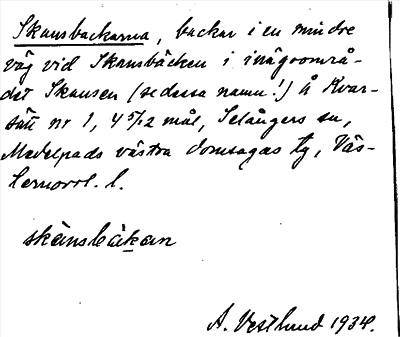 Skansbackarna, backar i en mindre
väg vid Skansbäcken i inägoområ-
det Skansen (se dessa namn!) å Kvar-
sätt nr 1, 4 5/12 mål, Selångers sn,
Medelpads västra domsagas tg, Väs-
ternorrl. l.
skánsbàkan
A. Vestlund 1934.